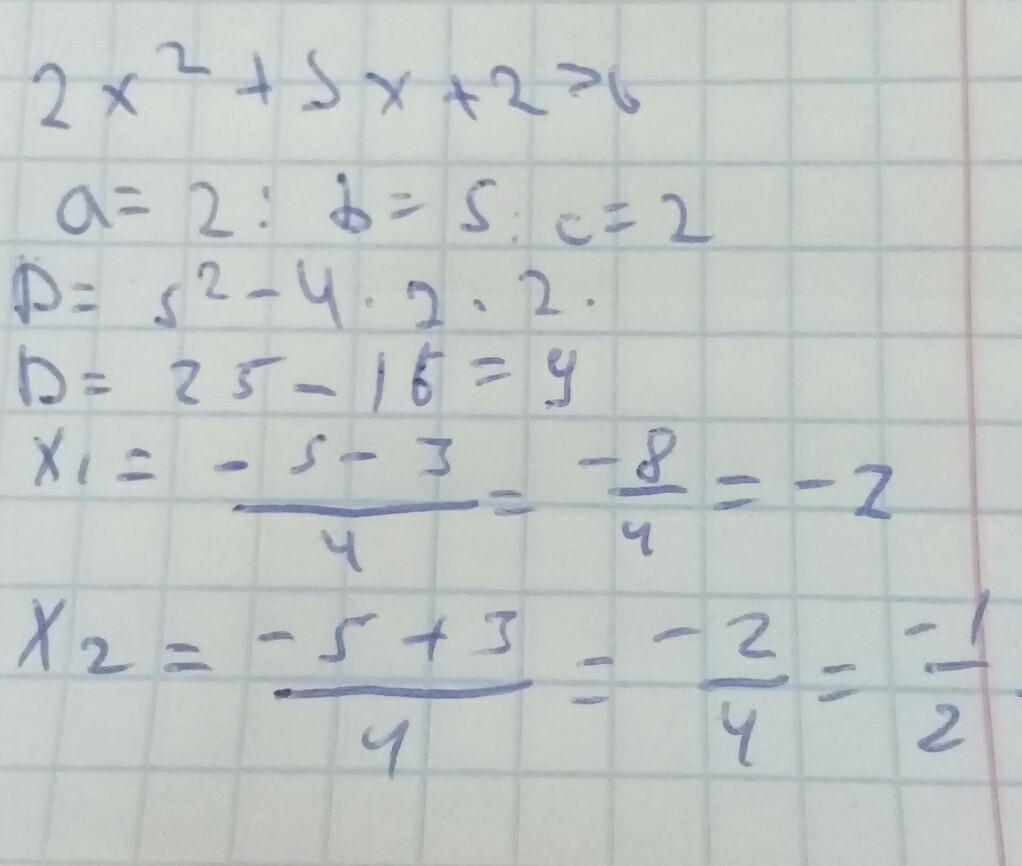 2x² + 5x + 2 > 0
a = 2; b = 5; c = 2
D = 5² - 4 · 2 · 2.
D = 25 - 16 = 9
x₁ = (-5 - 3)/4 = -8/4 = -2
x₂ = (-5 + 3)/4 = -2/4 = -1/2.